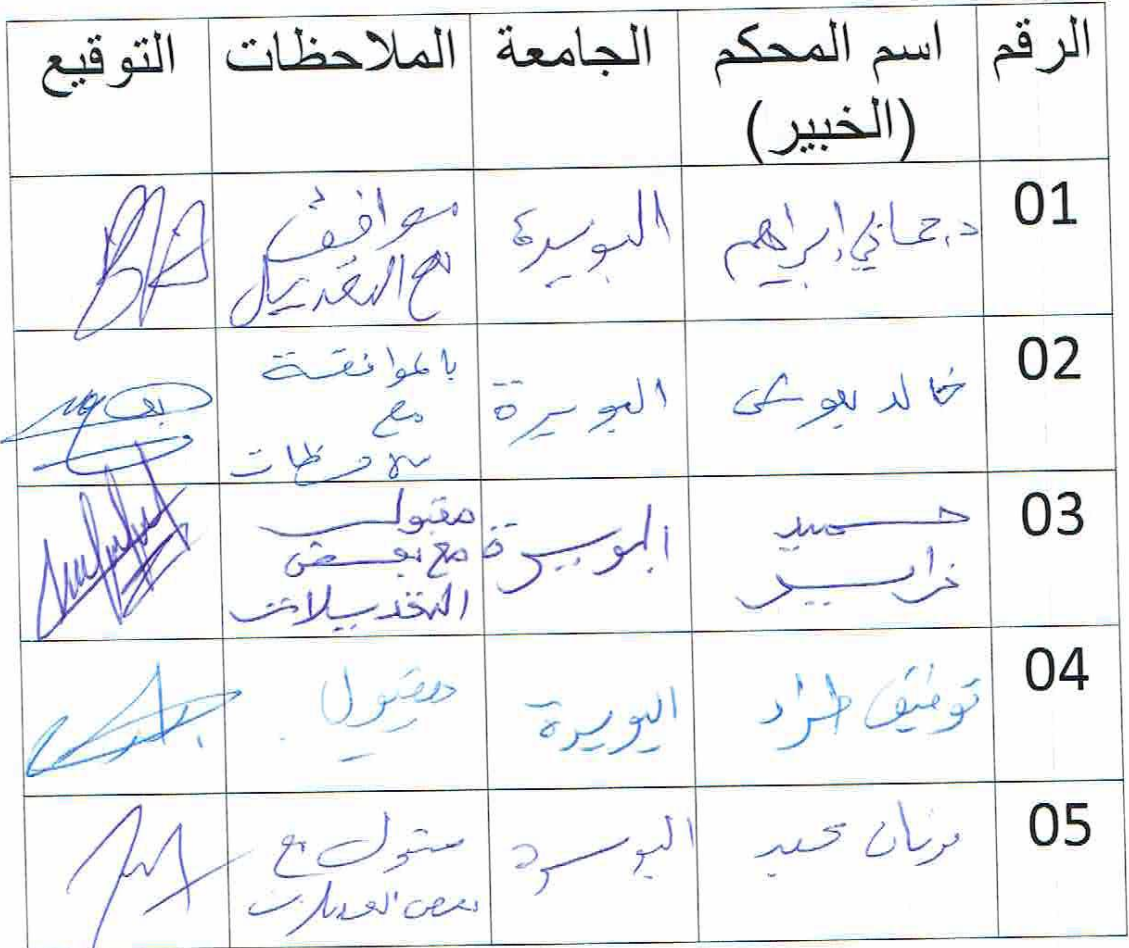 الرقم اسم المحكم الجامعة الملاحظات التوقيع
(الخبير)
01 د. حماني إبراهيم البويرة موافق
مع التعديل
02 خالد بعوشي البويرة بالموافقة
مع
ملاحظات
03 حميد البويرة مقبول
مع بعض
التعديلات
04 توفيق طراد البويرة مقبول
05 البويرة مقبول مع
بعض التعديلات